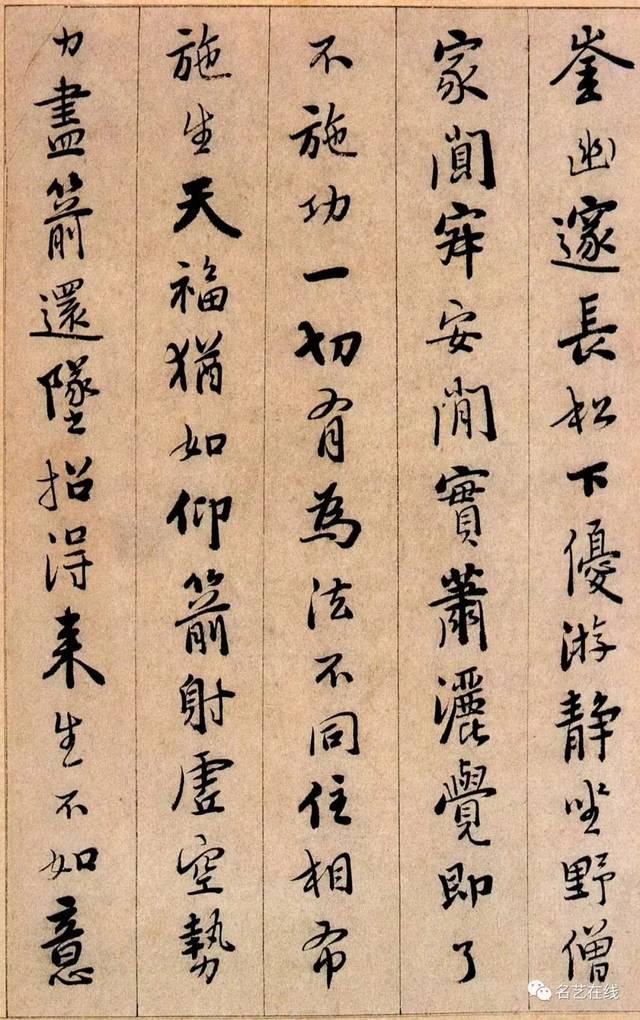 崟幽邃長松下優游静坐野僧
家闃寂安閑實蕭灑覺即了
不施功一切有為法不同住相布
施生天福猶如仰箭射虛空勢
力盡箭還墜招得来生不如意
名艺在线